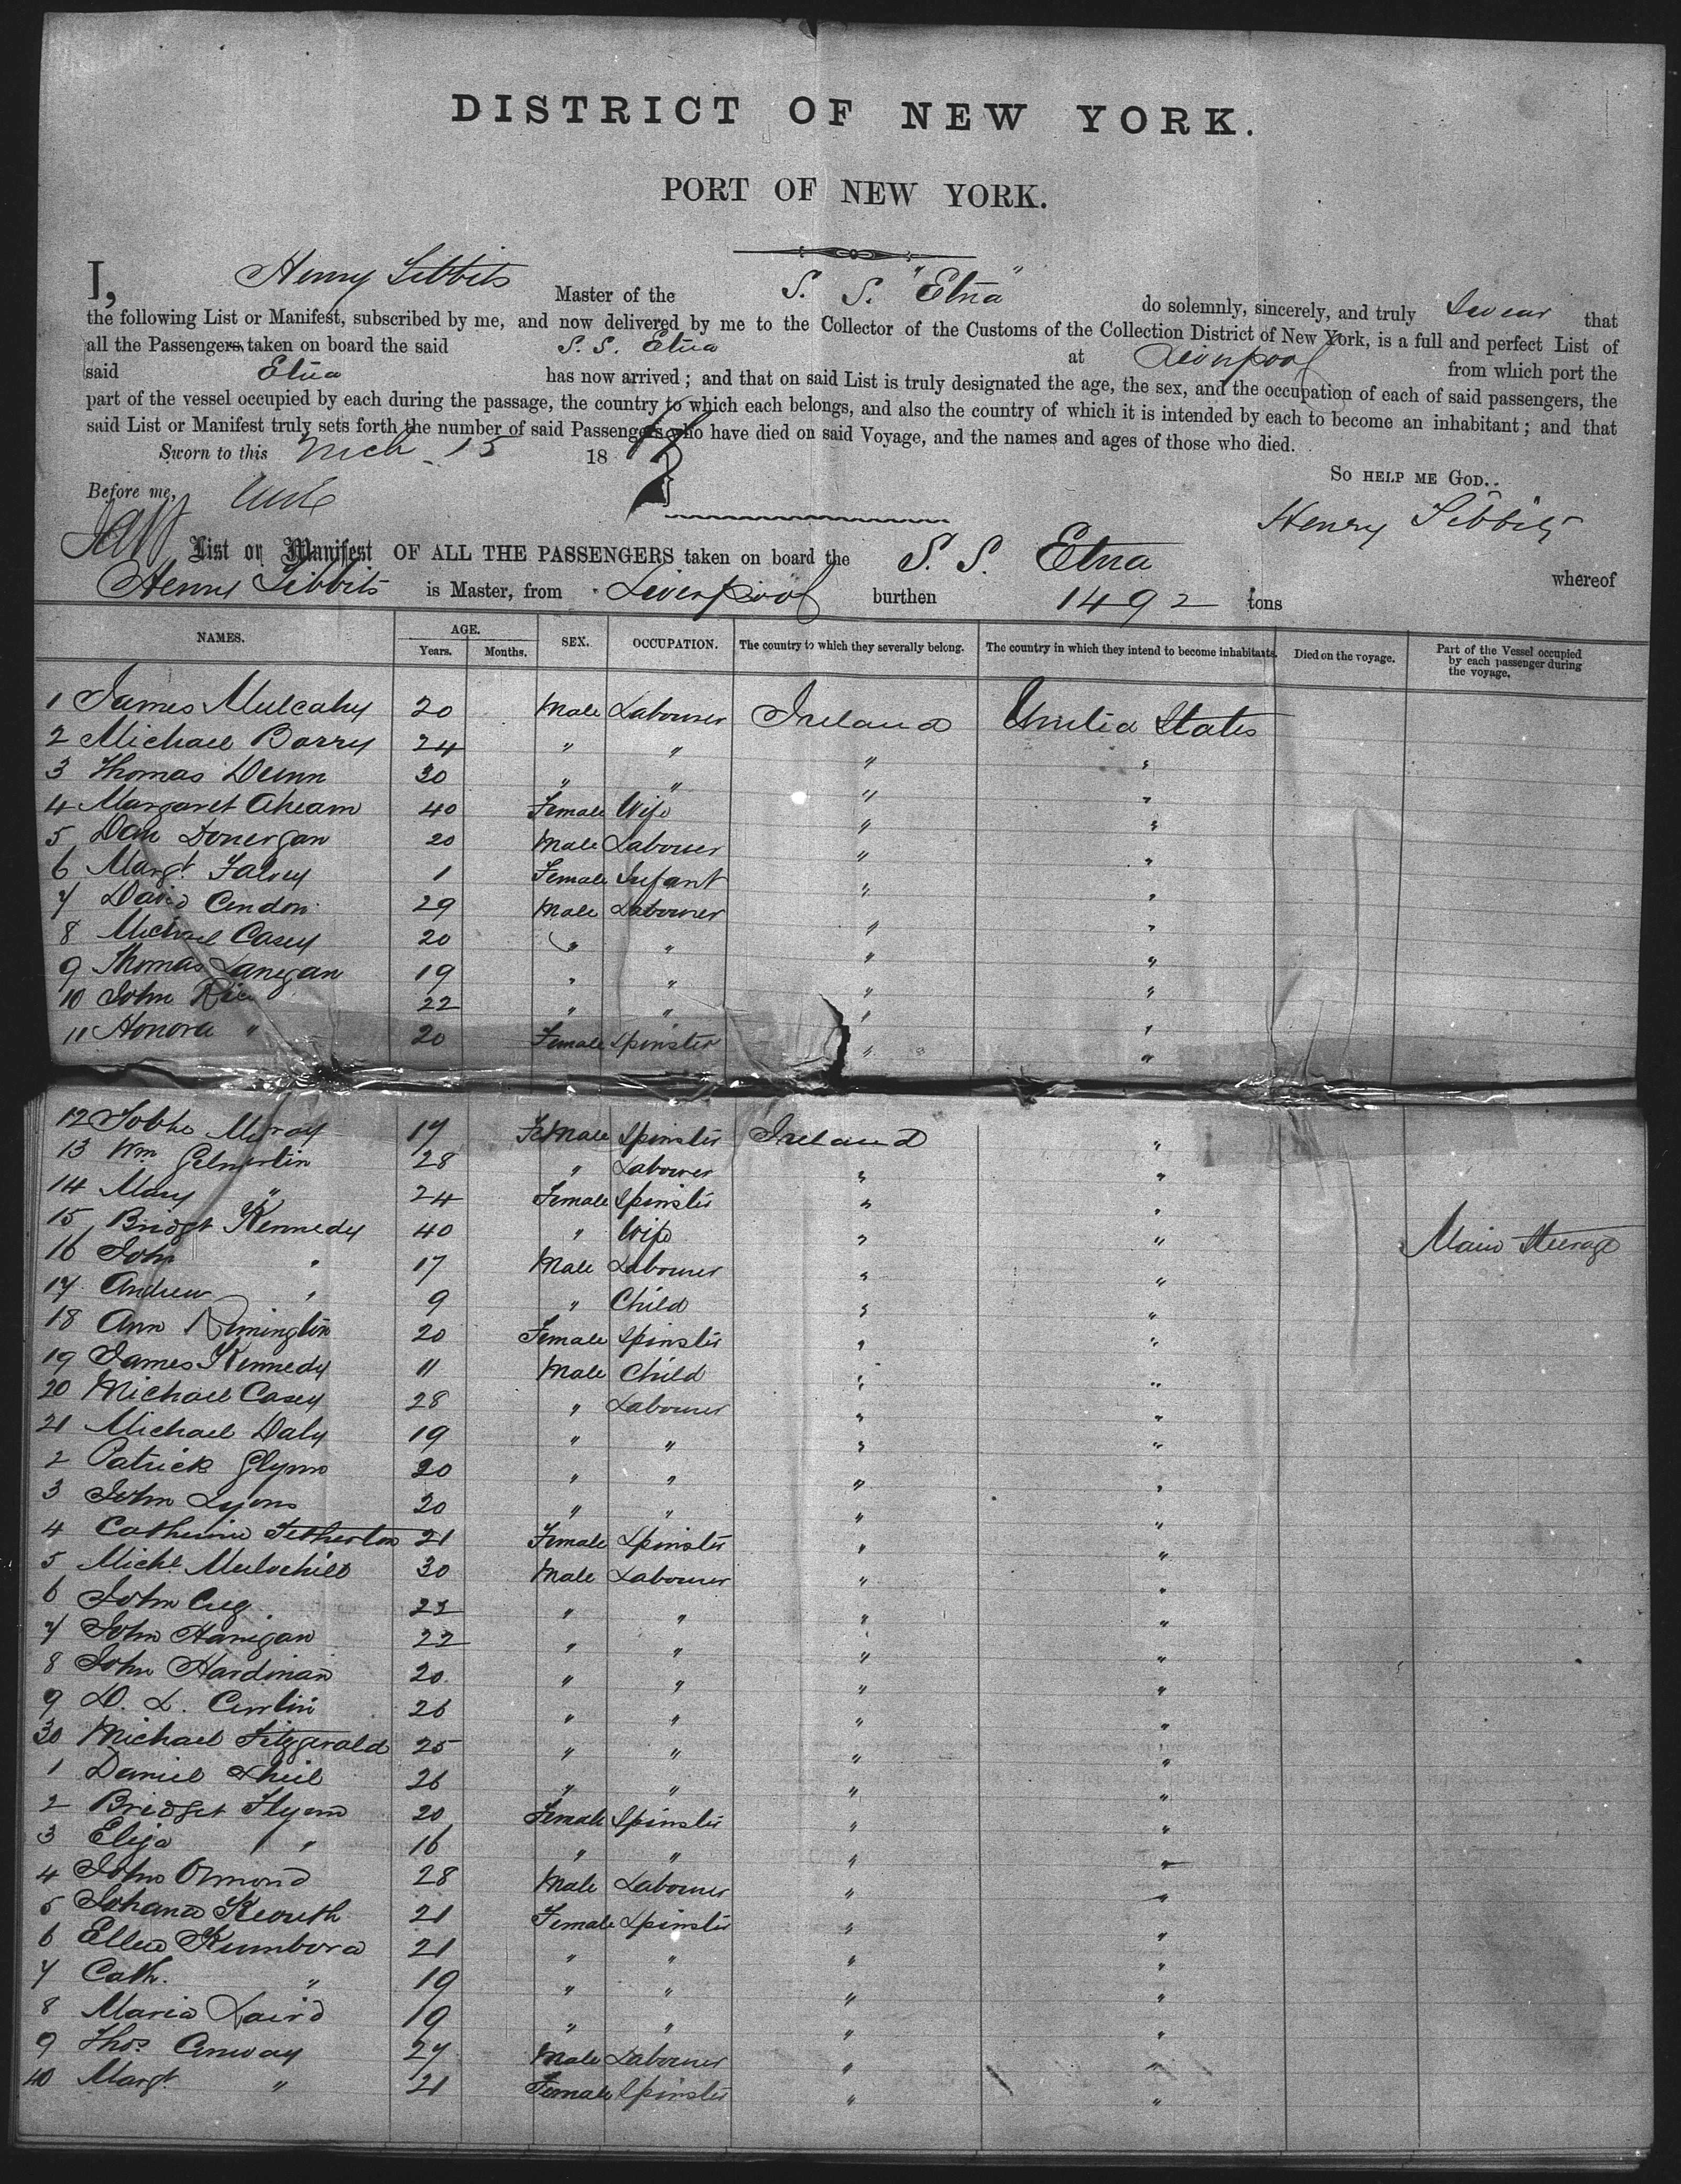 DISTRICT OF NEW YORK.
PORT OF NEW YORK.
I, Henry Tibbits Master of the S. S. "Etna" do solemnly, sincerely, and truly Swear that
the following List or Manifest, subscribed by me, and now delivered by me to the Collector of the Customs of the Collection District of New York, is a full and perfect List of
all the Passengers taken on board the said S. S. Etna at Liverpool from which port the
said Etna has now arrived; and that on said List is truly designated the age, the sex, and the occupation of each of said passengers, the
part of the vessel occupied by each during the passage, the country to which each belongs, and also the country of which it is intended by each to become an inhabitant; and that
said List or Manifest truly sets forth the number of said Passengers who have died on said Voyage, and the names and ages of those who died.
Sworn to this Mch 15 18
SO HELP ME GOD..
Before me,
Henry Tibbits
List or Manifest OF ALL THE PASSENGERS taken on board the S. S. Etna whereof
Henry Tibbits is Master, from Liverpool burthen 1492 tons
NAMES. AGE. Years. Months. SEX. OCCUPATION. The country to which they severally belong. The country in which they intend to become inhabitants. Died on the voyage. Part of the Vessel occupied by each passenger during the voyage.
1 James Mulcahy 20 Male Labourer Ireland United States
2 Michael Barry 24 " " " "
3 Thomas Dunn 30 " " " "
4 Margaret Ahearn 40 Female Wife " "
5 Dan Donergan 20 Male Labourer " "
6 Margt. Falvey 1 Female Infant " "
7 David Condon 29 Male Labourer " "
8 Michael Casey 20 " " " "
9 Thomas Lanegan 19 " " " "
10 John Rice 22 " " " "
11 Honora " 20 Female Spinster " "
12 17 Female Spinster Ireland "
13 Wm 28 " Labourer " "
14 Mary " 24 Female Spinster " "
15 Bridgt Kennedy 40 " Wife " " Main Steerage
16 John " 17 Male Labourer " "
17 Andrew " 9 " Child " "
18 Ann Rimington 20 Female Spinster " "
19 James Kennedy 11 Male Child " "
20 Michael Casey 28 " Labourer " "
21 Michael Daly 19 " " " "
2 Patrick Glynn 20 " " " "
3 John Lyons 20 " " " "
4 Catherine Fetherton 21 Female Spinster " "
5 Michl. 30 Male Labourer " "
6 John 22 " " " "
7 John Hanigan 22 " " " "
8 John Hardiman 20 " " " "
9 D. L. Curtin 26 " " " "
30 Michael Fitzgerald 25 " " " "
1 Daniel Shiel 26 " " " "
2 Bridget Flynn 20 Female Spinster " "
3 Eliza " 16 " " " "
4 John Ormond 28 Male Labourer " "
5 Johana 21 Female Spinster " "
6 Ellen 21 " " " "
7 Cath. " 19 " " " "
8 Maria Laird 19 " " " "
9 Thos. Conway 27 Male Labourer " "
40 Margt. " 21 Female Spinster " "